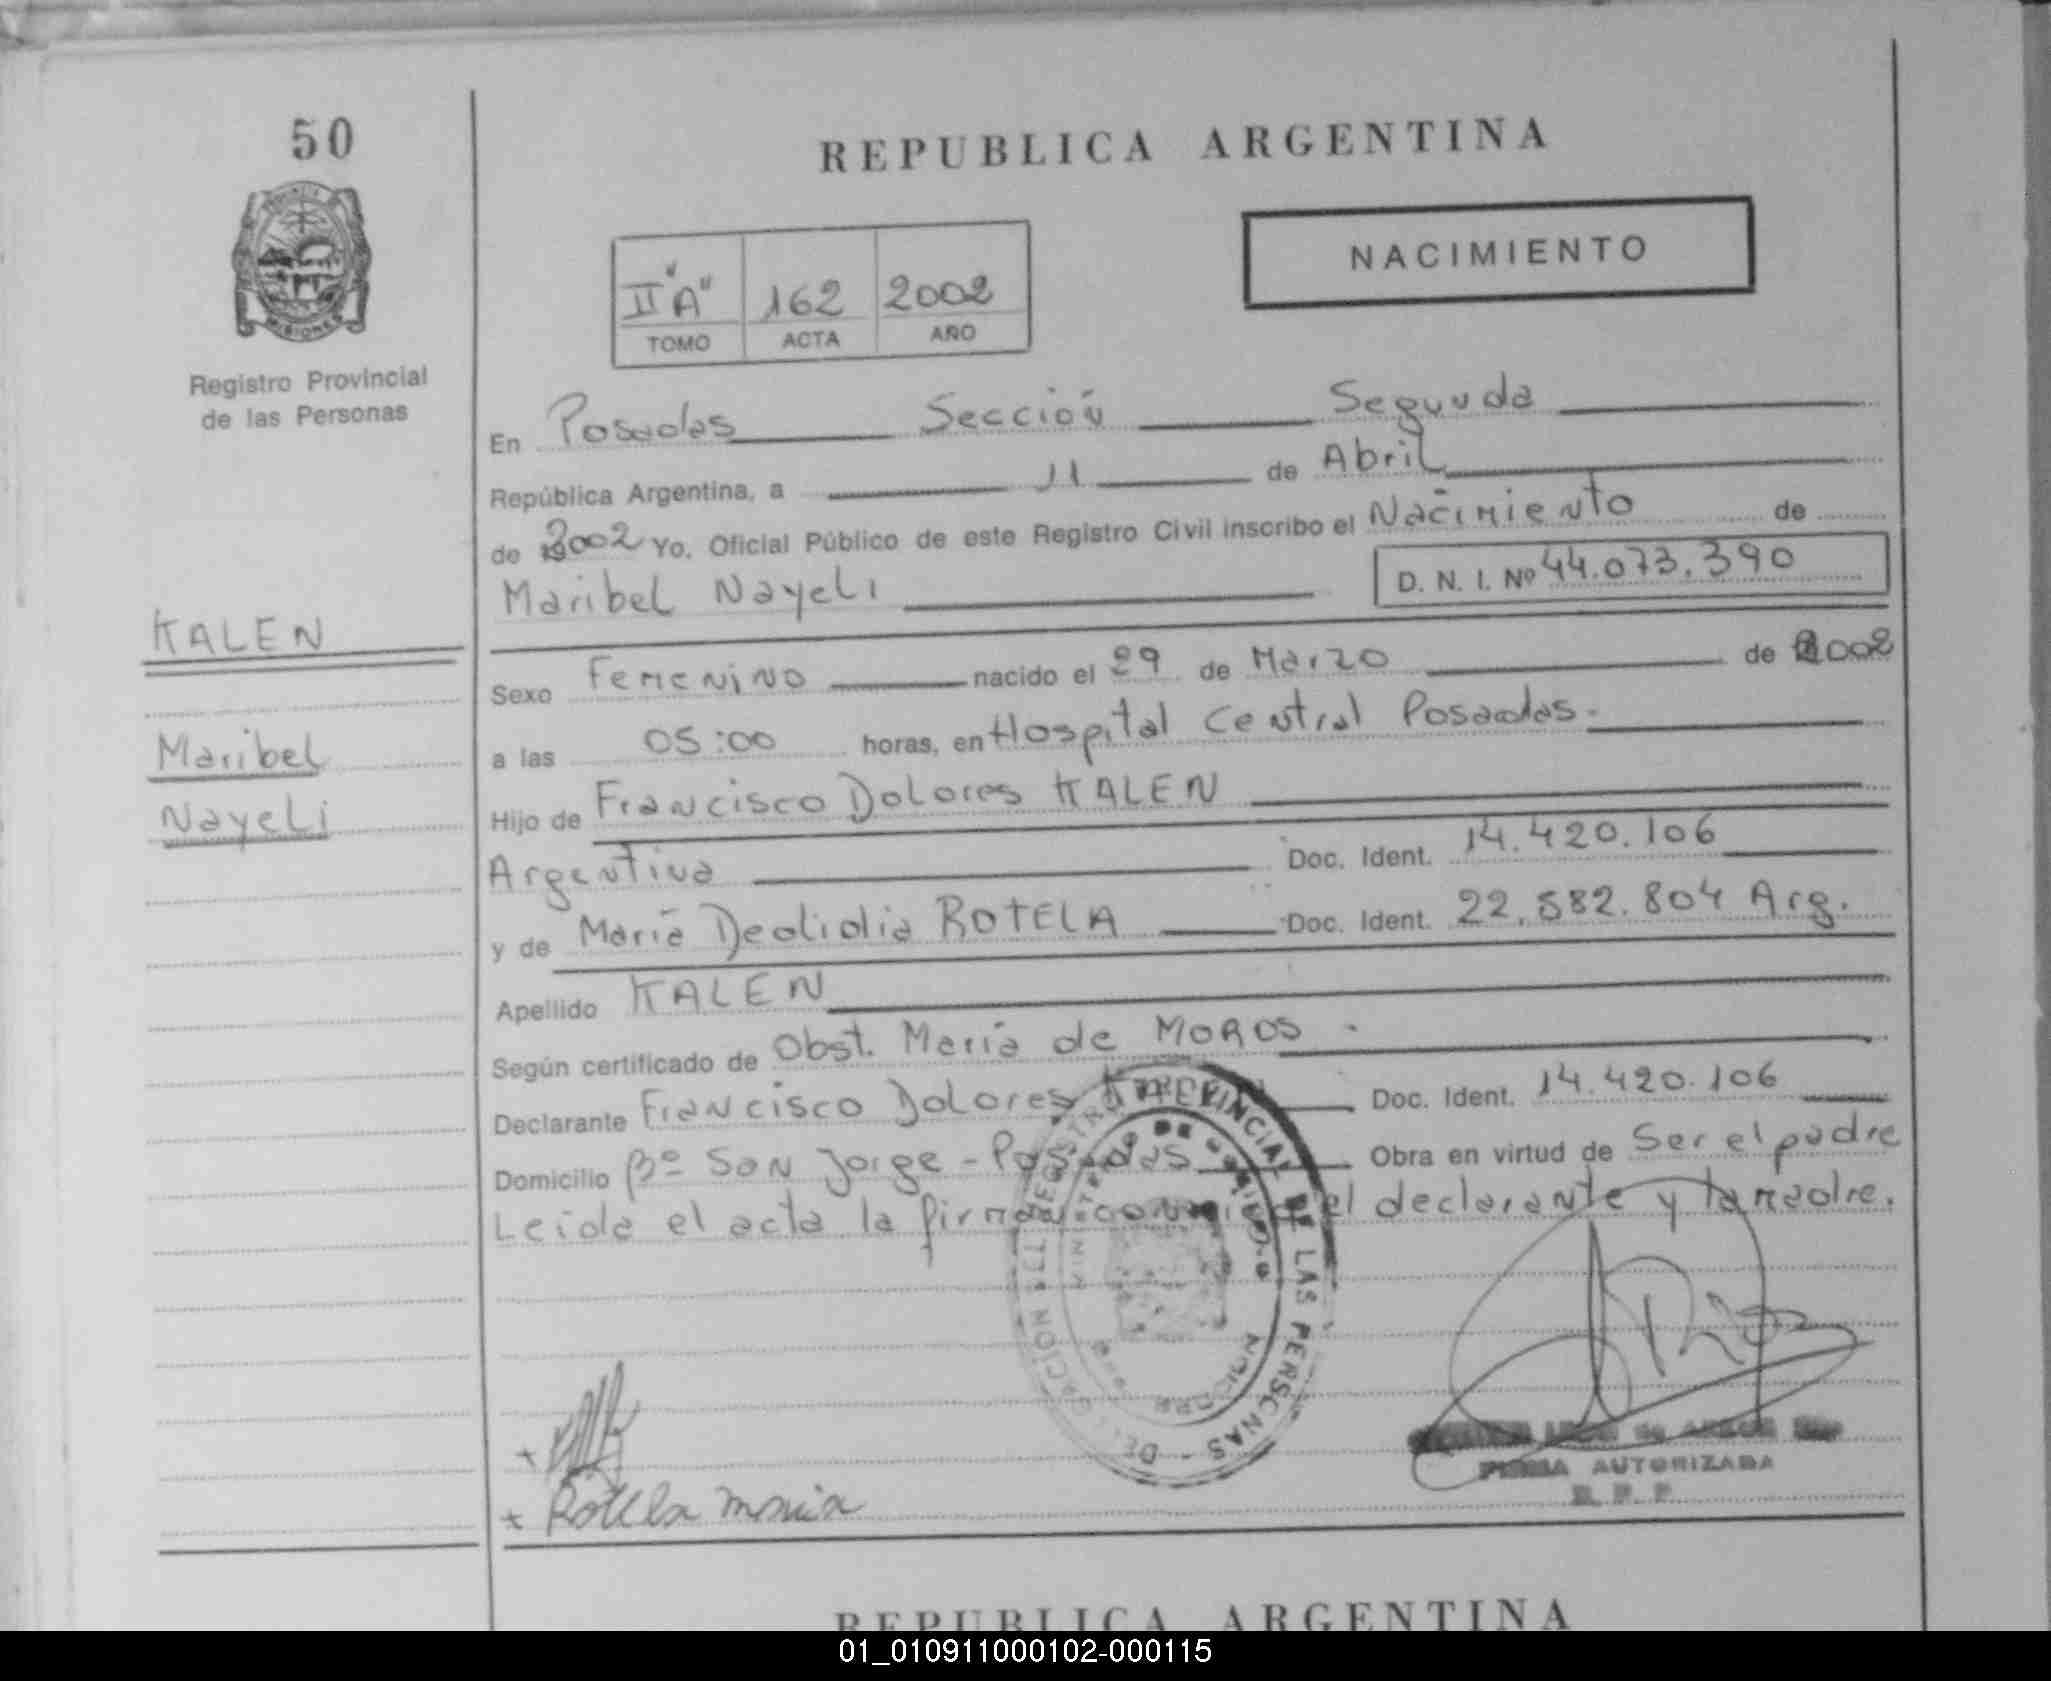 50
REPUBLICA ARGENTINA
NACIMIENTO
II "A" 162 2002
TOMO ACTA AÑO
MISIONES
Registro Provincial
de las Personas
En Posadas Sección Segunda
República Argentina, a 11 de Abril
de 2002 Yo, Oficial Público de este Registro Civil inscribo el Nacimiento de
Maribel Nayeli D. N. I. Nº 44.073.390
KALEN
Maribel
Nayeli
Sexo Femenino nacido el 29 de Marzo de 2002
a las 05:00 horas, en Hospital Central Posadas.
Hijo de Francisco Dolores KALEN
Argentina Doc. Ident. 14.420.106
y de María Deolidia ROTELA Doc. Ident. 22.582.804 Arg.
Apellido KALEN
Según certificado de Obst. María de MOROS.
Declarante Francisco Dolores Doc. Ident. 14.420.106
Domicilio Bº San Jorge - Posadas Obra en virtud de Ser el padre
Leída el acta la firman conmigo el declarante y la madre.
PROVINCIAL DE LAS PERSONAS
Rotela Maria
FIRMA AUTORIZADA
R. P. P.
REPUBLICA ARGENTINA
01_010911000102-000115